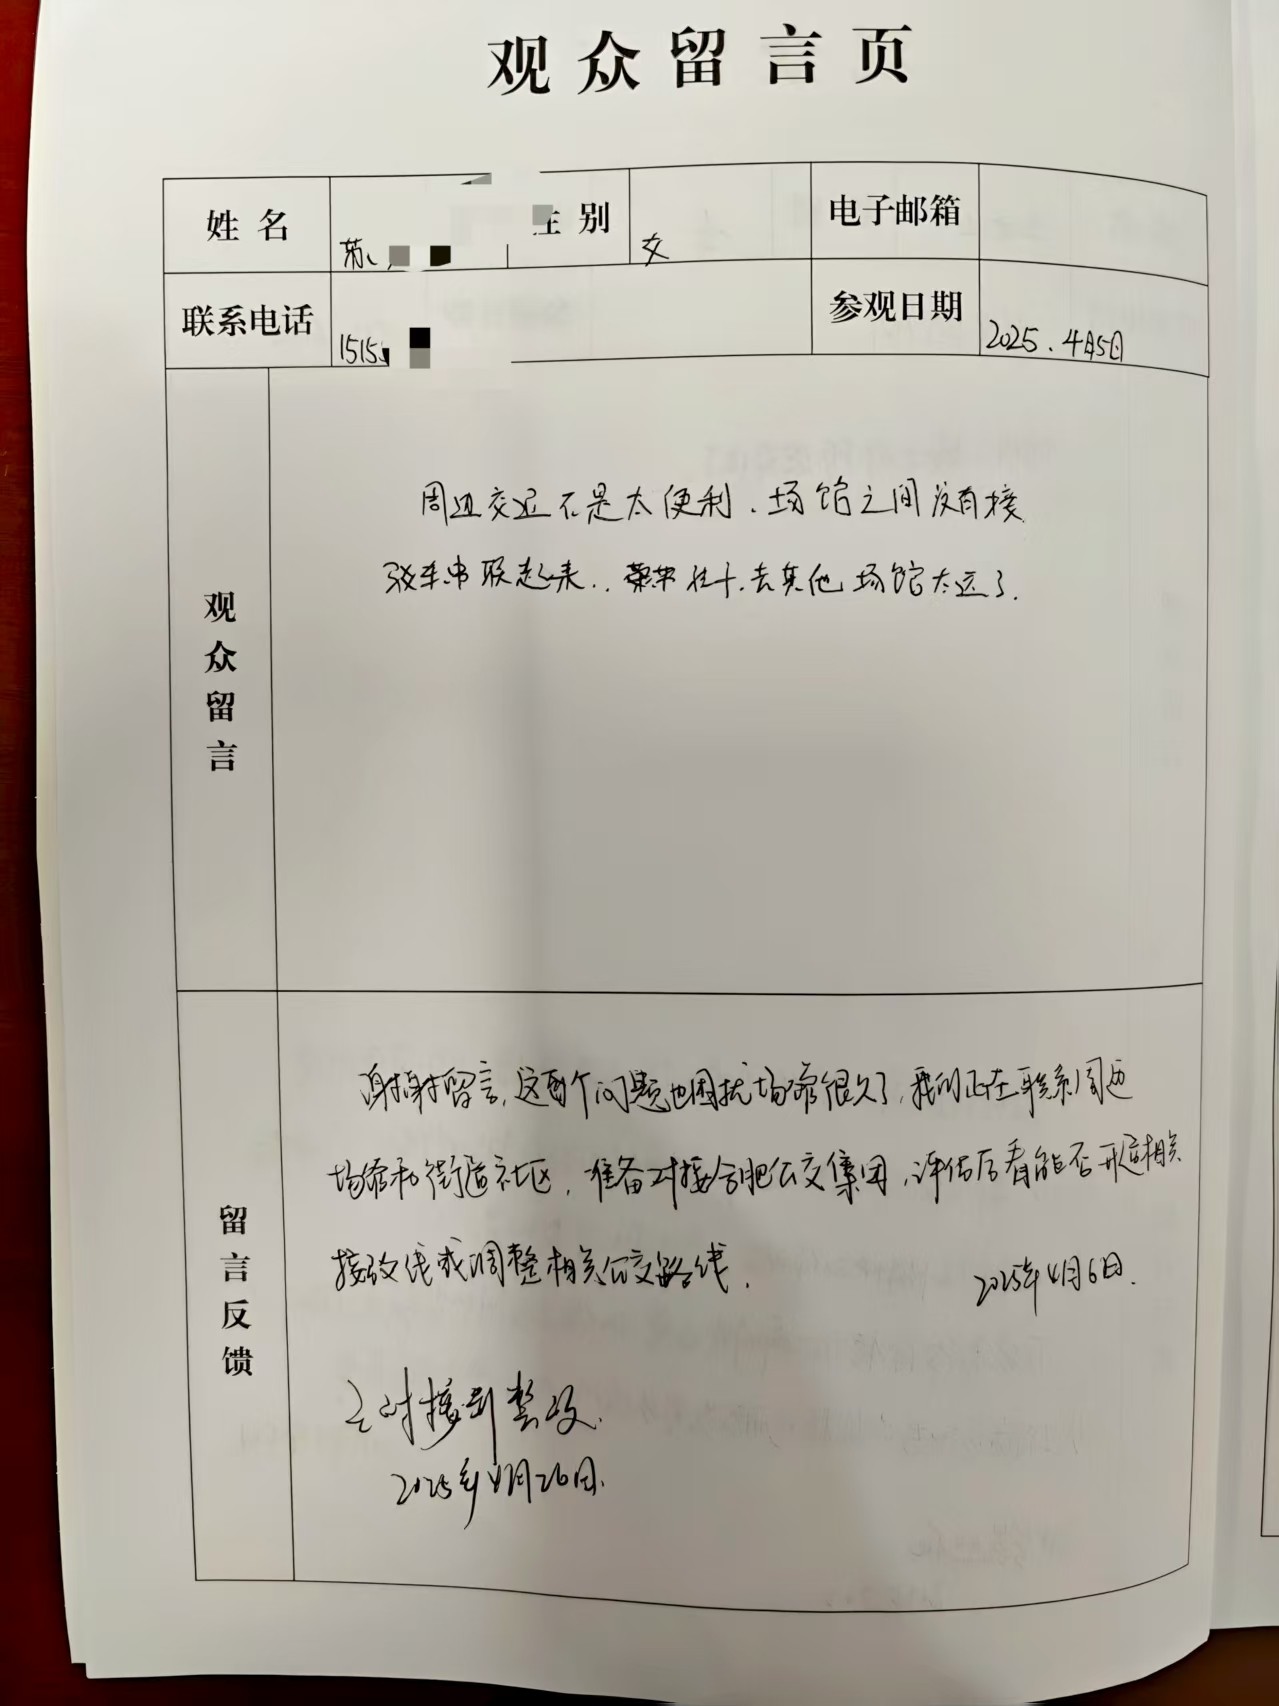 观众留言页
姓名
性别 女
电子邮箱
联系电话 1515
参观日期 2025.4月5日
观众留言
周边交通不是太便利、场馆之间没有接
驳车串联起来..去其他场馆太远了.
留言反馈
谢谢留言,这两个问题也困扰场馆很久了,我们正在联系周边
场馆和街道社区,准备对接合肥公交集团,评估后看能否开通相关
接驳线或调整相关公交路线.
2025年4月6日.
对接到整改.
2025年4月26日.